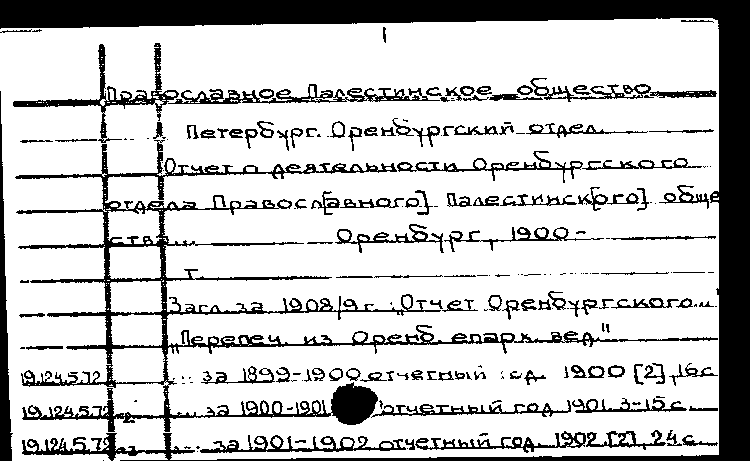 Православное Палестинское общество
Петербург. Оренбургский отдел.
Отчет о деятельности Оренбургского
отдела Правосл[авного] Палестинск[ого] обще
ства... Оренбург, 1900-
т.
Загл. за 1908/9 г. „Отчет Оренбургского..."
„Перепеч. из Оренб. епарх. вед."
19.124.5.72 ... за 1899-1900 отчетный год. 1900 [2], 16 с
19.124.5.72 ... за 1900-1901 отчетный год 1901. 3-15 с.
19.124.5.72 ... за 1901-1902 отчетный год. 1902. [2], 24 с.